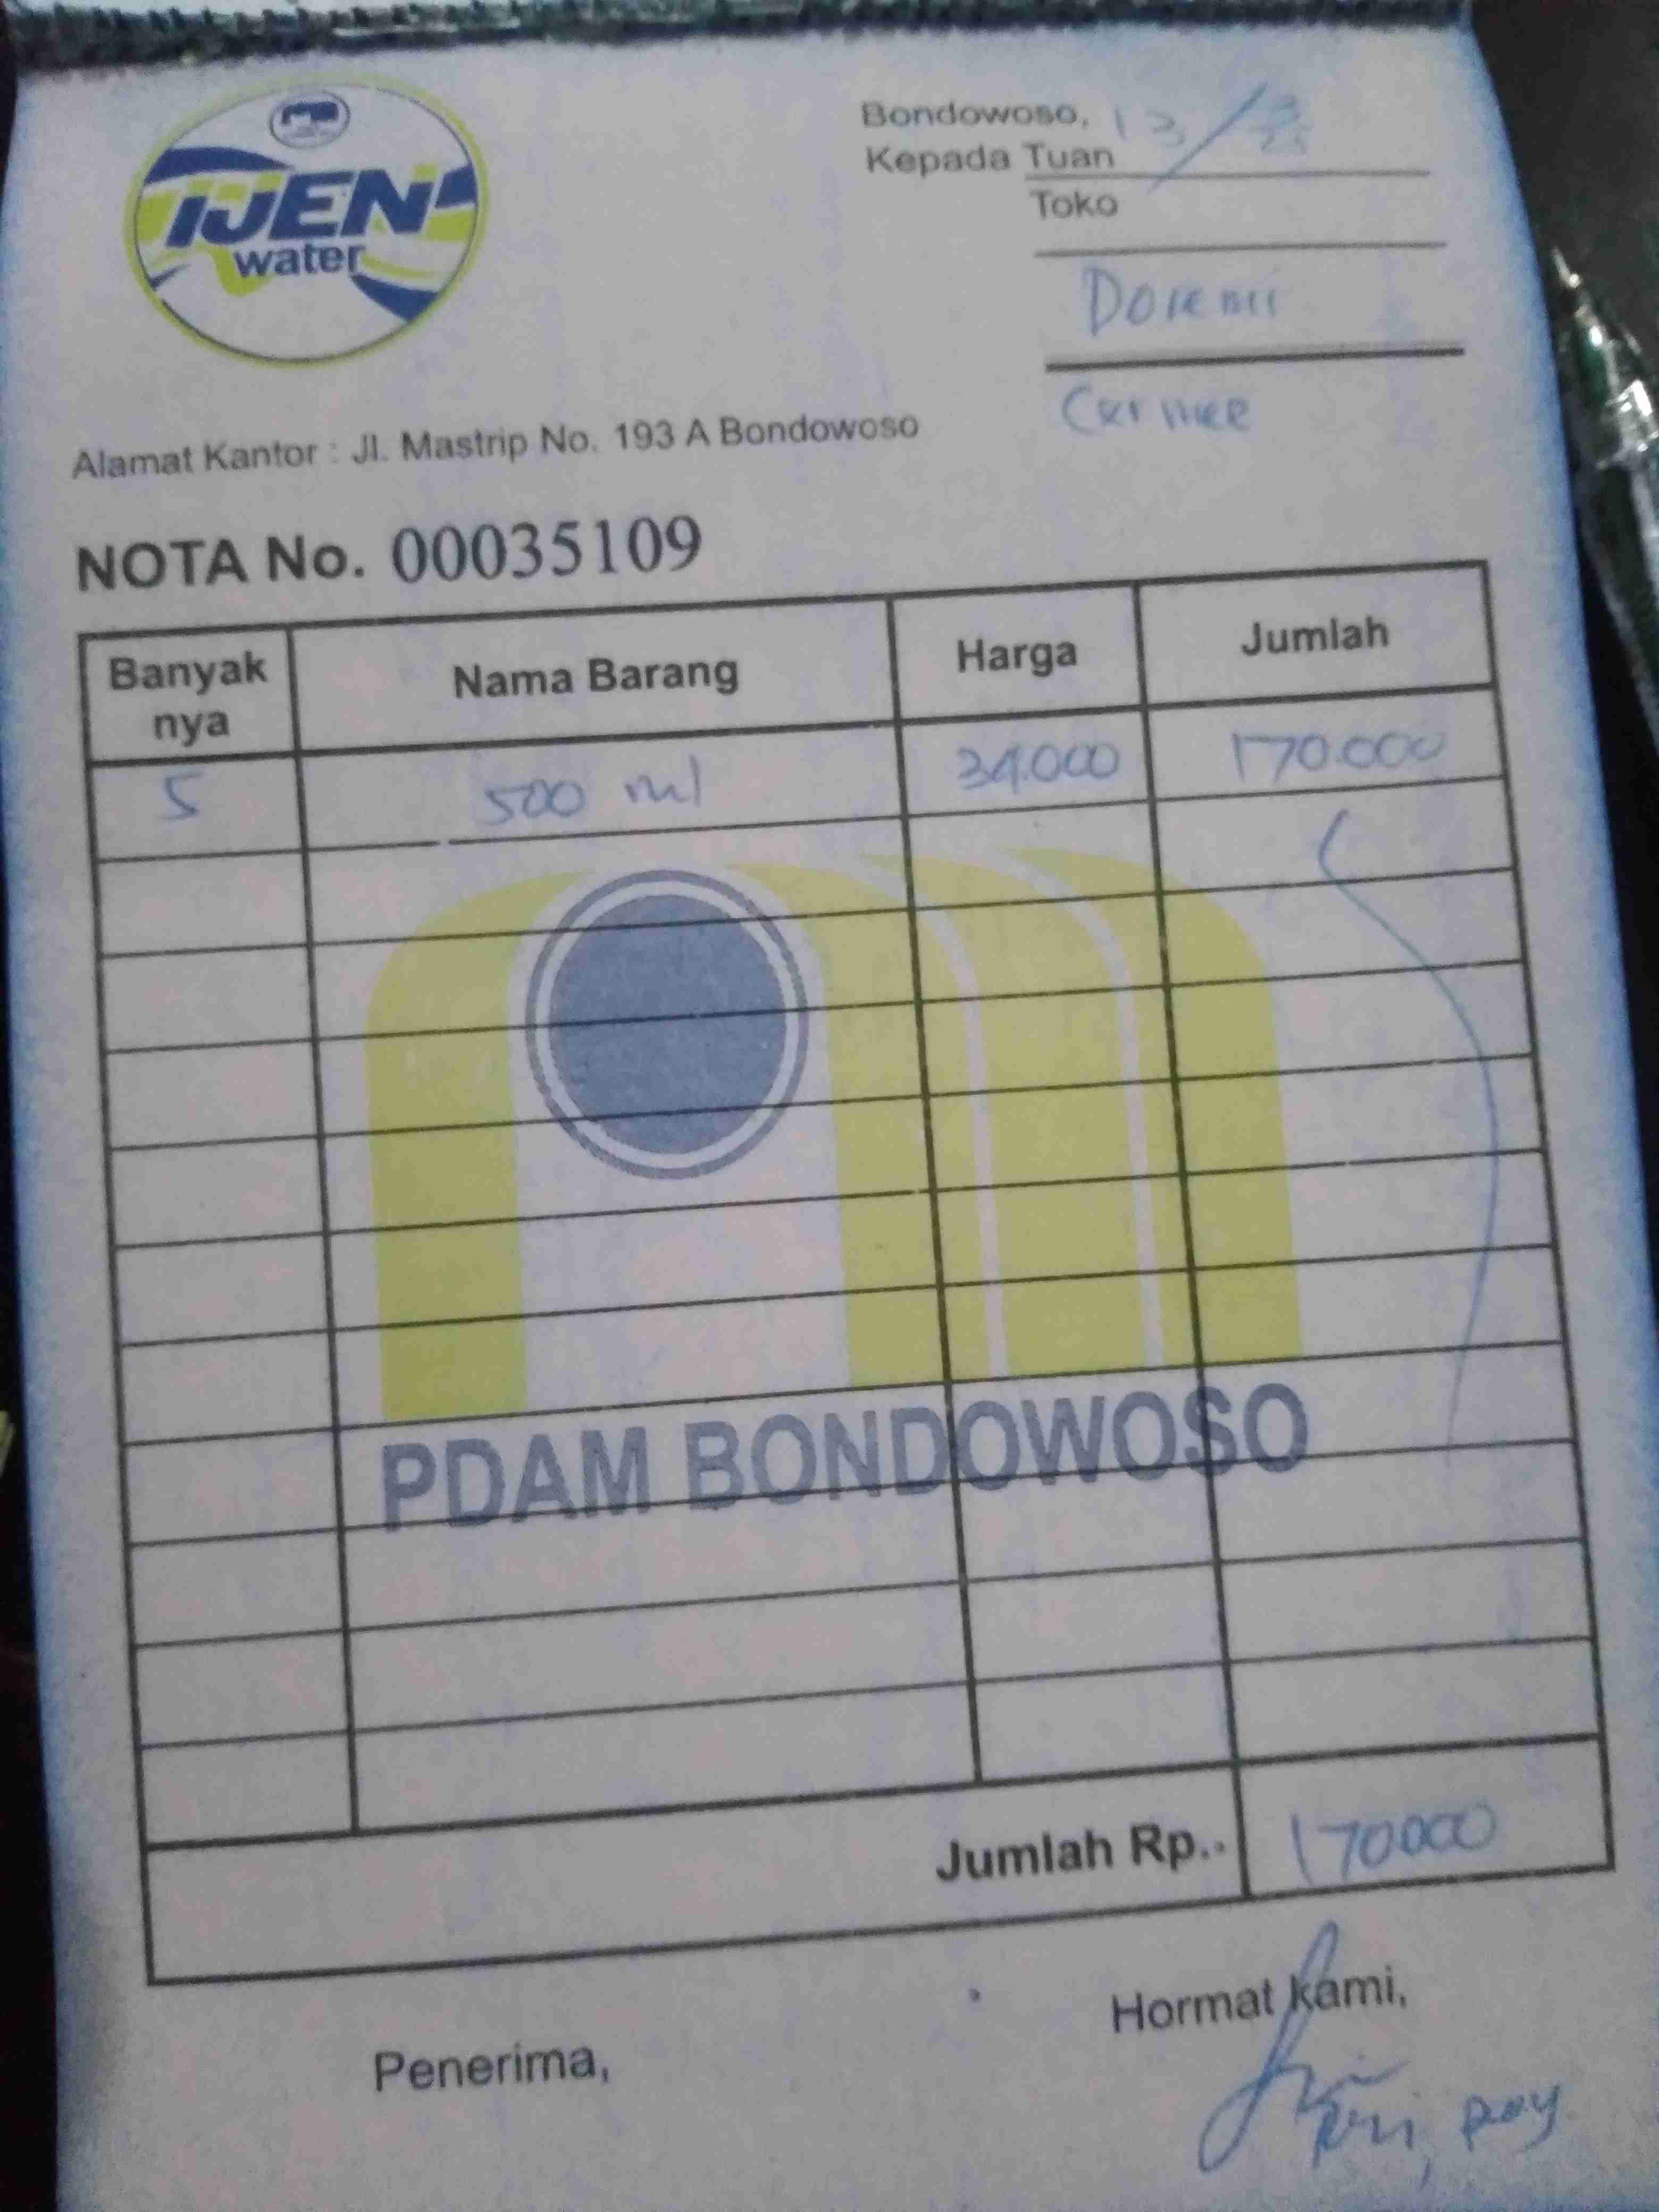 IJEN
water
Bondowoso, 13/3/25
Kepada Tuan
Toko
Doremi
Cermee
Alamat Kantor : Jl. Mastrip No. 193 A Bondowoso
NOTA No. 00035109
Banyak nya Nama Barang Harga Jumlah
5 500 ml 34.000 170.000
PDAM BONDOWOSO
Jumlah Rp.. 170000
Penerima,
Hormat kami,